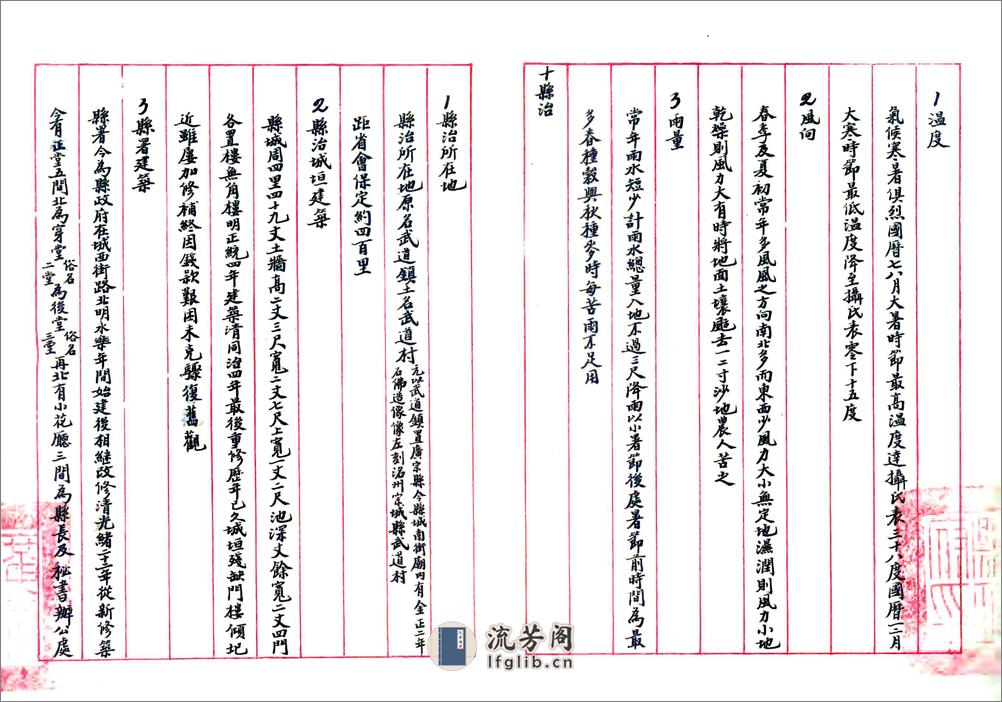 1温度
氣候寒暑俱烈國曆七八月大暑時節最高温度達攝氏表三十八度國曆一二月
大寒時節最低温度降至攝氏表零下十五度
2風向
春季及夏初常年多風風之方向南北多而東西少風力大小無定地濕潤則風力小地
乾燥則風力大有時將地面土壤颳去一二寸沙地農人苦之
3雨量
常年雨水短少計雨水總量入地不過三尺降雨以小暑節後處暑節前時間為最
多春種穀與秋種麥時每苦雨不足用
十縣治
1縣治所在地
縣治所在地原名武道鎮土名武道村元以武道鎮置廣宗縣今縣城南街廟内有金正二年
石佛造像像左刻洺州宗城縣武道村
距省會保定約四百里
2縣治城垣建築
縣城周四里四十九丈土牆高二丈三尺寬二丈七尺上寬一丈二尺池深丈餘寬二丈四門
各置樓無角樓明正統四年建築清同治四年最後重修歷年已久城垣殘缺門樓傾圮
近雖屢加修補終因錢款艱困未克驟復舊觀
3縣署建築
縣署今為縣政府在城西街路北明永樂年間始建後相繼改修清光緒二十三年從新修築
今有正堂五間北為穿堂俗名二堂為後堂俗名三堂再北有小花廳三間為縣長及秘書辦公處
流芳阁
lfglib.cn